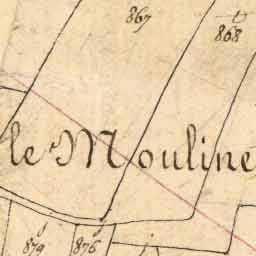 867
868
le Mouline
879
876